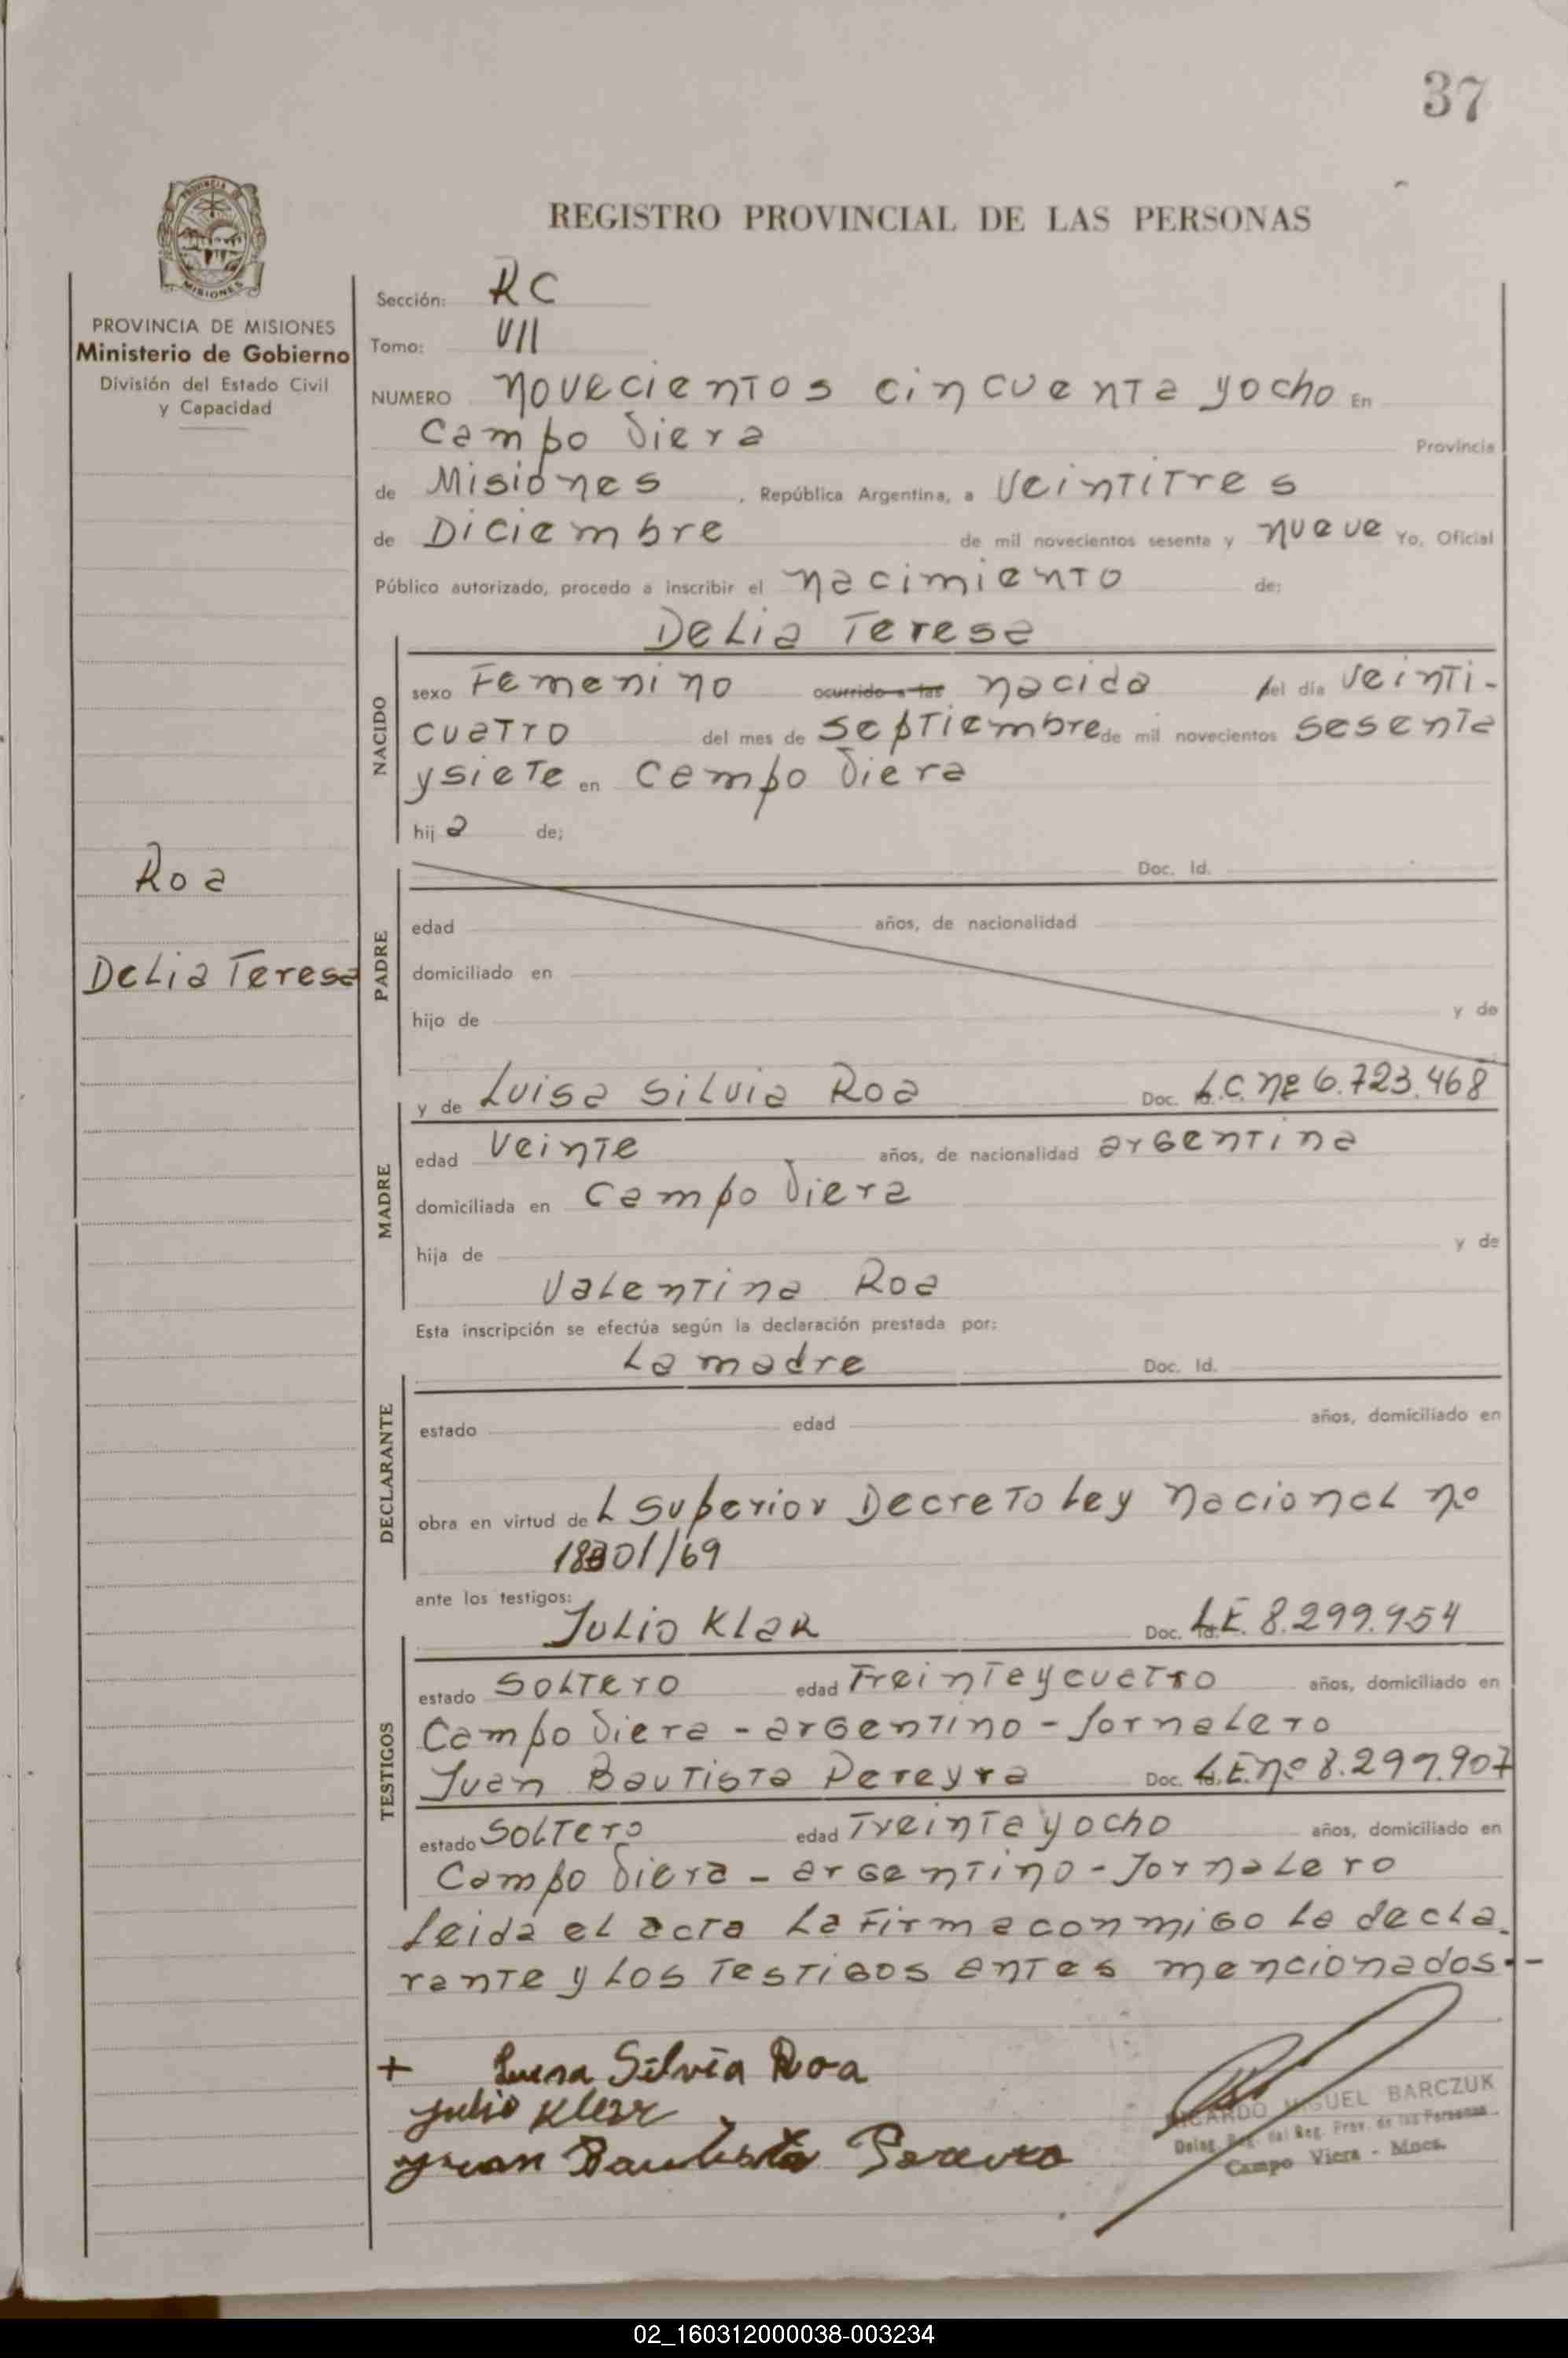 37
PROVINCIA DE MISIONES
REGISTRO PROVINCIAL DE LAS PERSONAS
PROVINCIA DE MISIONES
Ministerio de Gobierno
División del Estado Civil
y Capacidad
Sección: RC
Tomo: VII
NUMERO novecientos cincuenta yocho En
Campo Viera Provincia
de Misiones, República Argentina, a veintitres
de Diciembre de mil novecientos sesenta y nueve Yo, Oficial
Público autorizado, procedo a inscribir el nacimiento de:
Delia Teresa
NACIDO
sexo Femenino ocurrido a las nacida del día veinti-
cuatro del mes de septiembre de mil novecientos sesenta
ysiete en Campo Viera
hija de;
Roa
Delia Teresa
PADRE
Doc. Id.
edad años, de nacionalidad
domiciliado en
hijo de y de
MADRE
y de Luisa Silvia Roa Doc. L.C. nº 6.723.468
edad veinte años, de nacionalidad argentina
domiciliada en Campo Viera
hija de y de
Valentina Roa
Esta inscripción se efectúa según la declaración prestada por:
DECLARANTE
La madre Doc. Id.
estado edad años, domiciliado en
obra en virtud del superior Decreto Ley nacional nº
/69
ante los testigos:
TESTIGOS
Julio Doc. L.E. 8.299.954
estado soltero edad Treintaycuatro años, domiciliado en
Campo Viera - argentino - Jornalero
Juan Bautista Pereyra Doc. L.E. nº 8.299.907
estado soltero edad Treintayocho años, domiciliado en
Campo Viera - argentino - Jornalero
Leida el acta la firma conmigo la decla-
rante y los testigos antes mencionados.-
+ Luisa Silvia Roa
Julio
Juan Bautista
RICARDO MIGUEL BARCZUK
Deleg. del Reg. Prov. de las Personas
Campo Viera - Mnes.
02_160312000038-003234